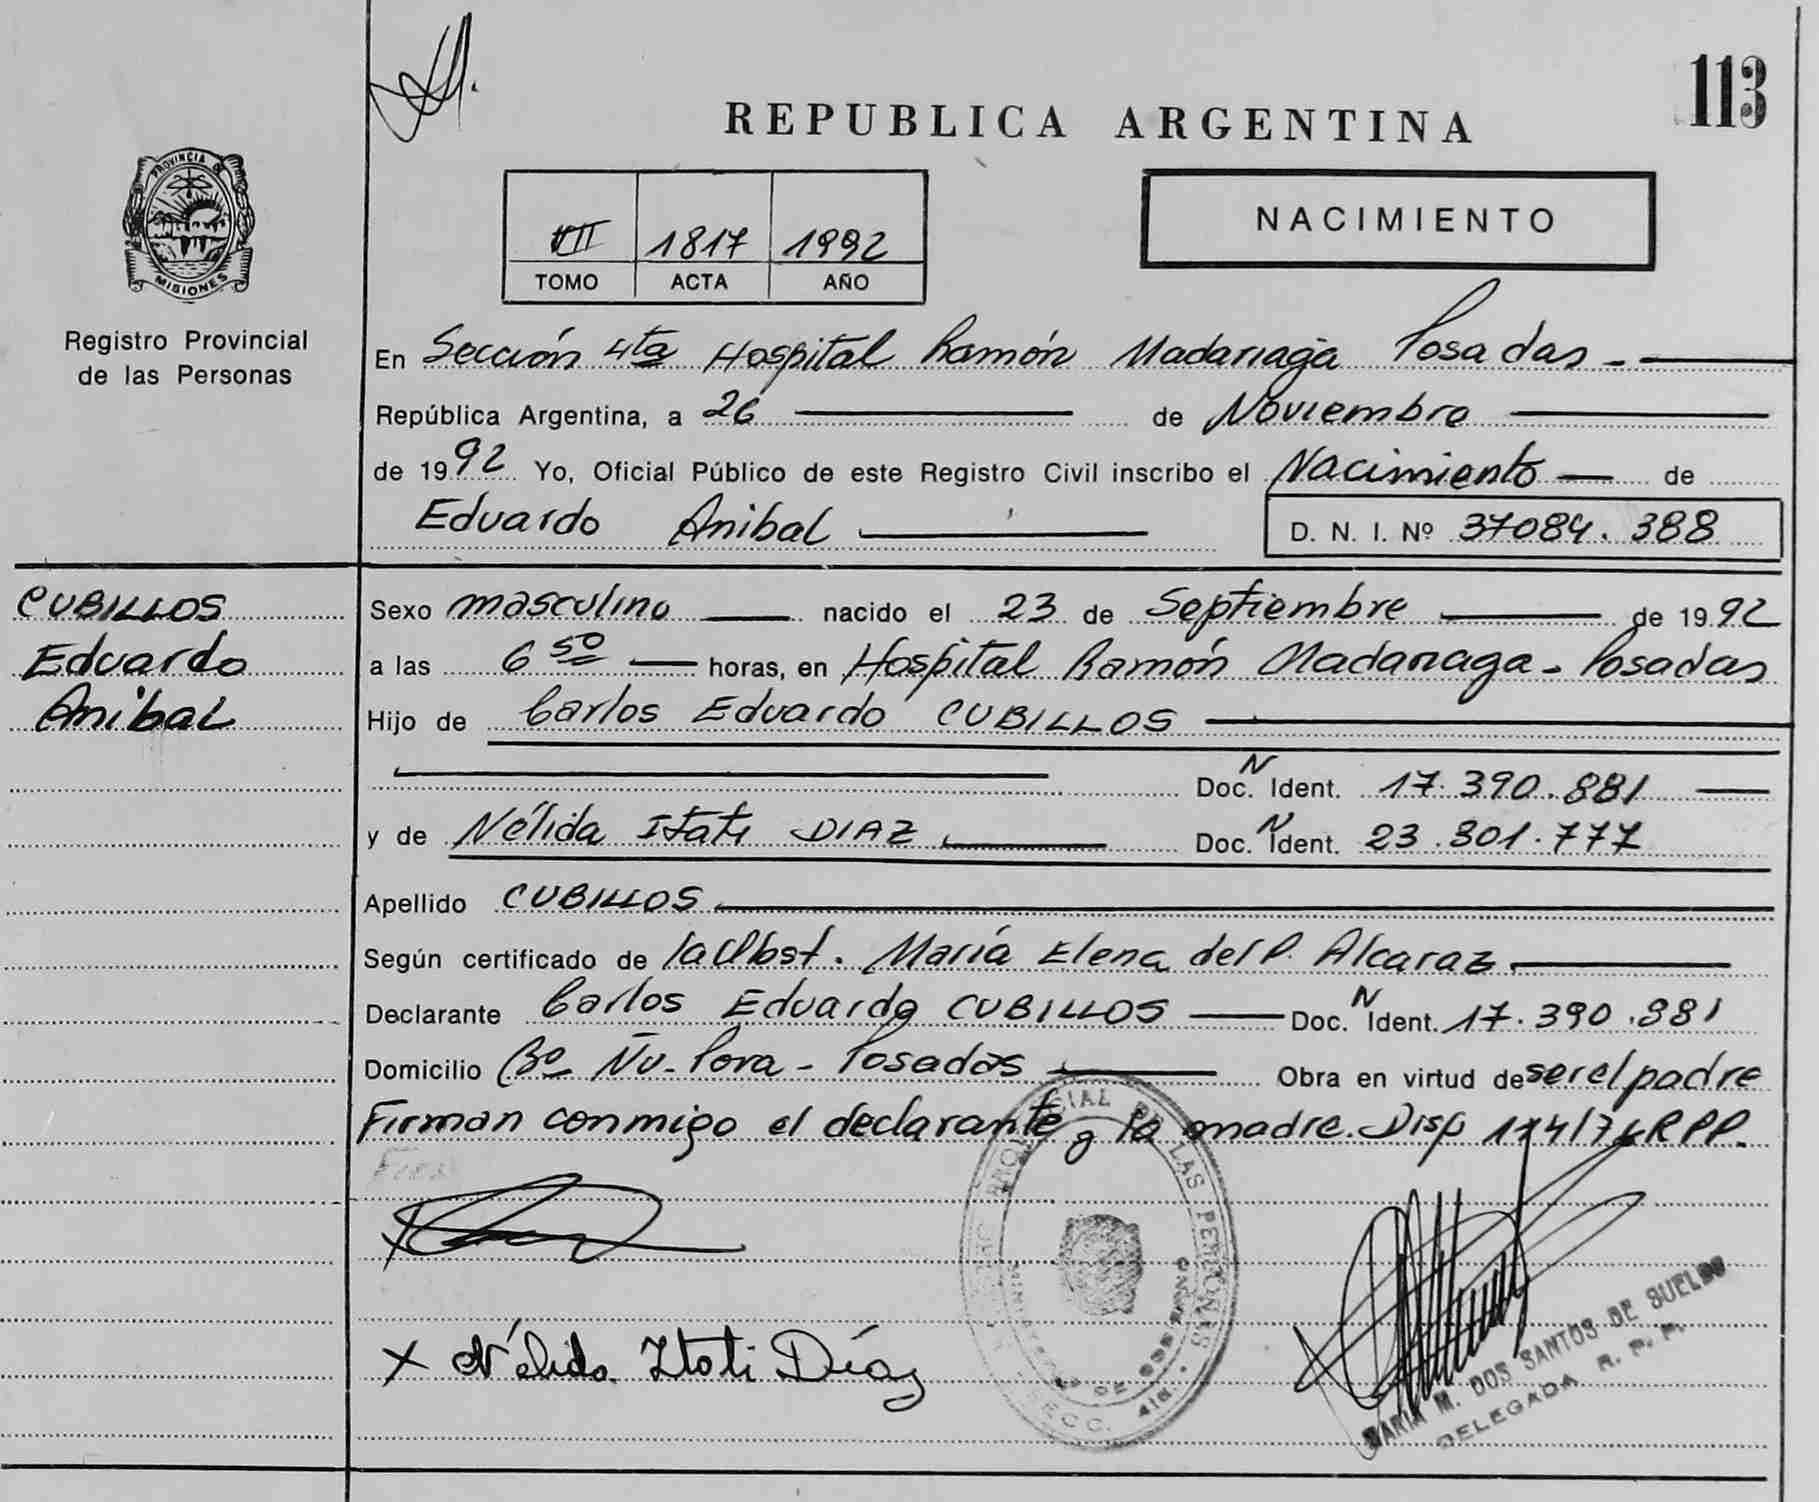 113
REPUBLICA ARGENTINA
PROVINCIA DE
MISIONES
Registro Provincial
de las Personas
VII 1817 1992
TOMO ACTA AÑO
NACIMIENTO
En Sección 4ta Hospital Ramón Madariaga Posadas -
República Argentina, a 26 de Noviembre
de 1992 Yo, Oficial Público de este Registro Civil inscribo el Nacimiento de
Eduardo Anibal D. N. I. Nº 37084.388
CUBILLOS
Eduardo
Anibal
Sexo masculino nacido el 23 de Septiembre de 1992
a las 6 50 horas, en Hospital Ramón Madariaga - Posadas
Hijo de Carlos Eduardo CUBILLOS
Doc. N Ident. 17.390.881
y de Nélida Itati DIAZ Doc. N Ident. 23.301.777
Apellido CUBILLOS
Según certificado de la Obst. María Elena del P. Alcaraz
Declarante Carlos Eduardo CUBILLOS Doc. N Ident. 17.390.881
Domicilio Bº Ñu-Pora - Posadas Obra en virtud de ser el padre
Firman conmigo el declarante y la madre. Disp RPP.
x Nélida Itati Díaz
MARIA M. DOS SANTOS DE SUELDO
DELEGADA R. P. P.